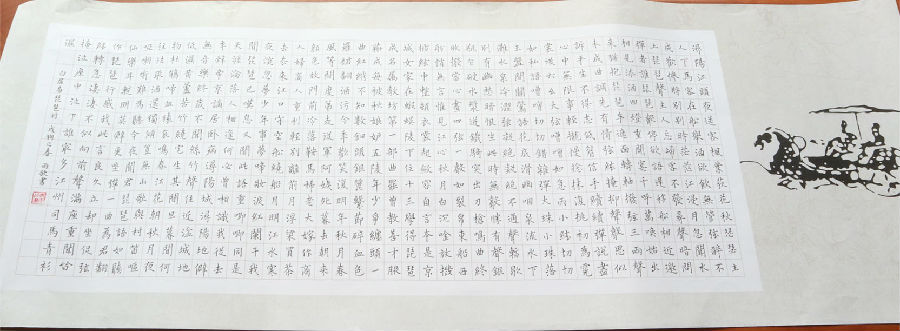 潯陽江頭夜送客楓葉荻花秋瑟瑟主
人下馬客在船舉酒欲飲無管弦醉不
成歡慘將別別時茫茫江浸月忽聞水
上琵琶聲主人忘歸客不發尋聲暗問
彈者誰琵琶聲停欲語遲移船相近邀
相見添酒回燈重開宴千呼萬喚始出
來猶抱琵琶半遮面轉軸撥弦三兩聲
未成曲調先有情弦弦掩抑聲聲思似
訴平生不得志低眉信手續續彈說盡
心中無限事輕攏慢撚抹復挑初為霓
裳後六么大弦嘈嘈如急雨小弦切切
如私語嘈嘈切切錯雜彈大珠小珠落
玉盤間關鶯語花底滑幽咽泉流水下
難冰泉冷澀弦凝絕凝絕不通聲漸歇
別有幽愁暗恨生此時無聲勝有聲銀
瓶乍破水漿迸鐵騎突出刀槍鳴曲終
收撥當心畫四弦一聲如裂帛東船西
舫悄無言唯見江心秋月白沉吟放撥
插弦中整頓衣裳起斂容自言本是京
城女家在蝦蟆陵下住十三學得琵琶
成名屬教坊第一部曲罷曾教善才服
妝成每被秋娘妒五陵年少爭纏頭一
曲紅綃不知數鈿頭銀篦擊節碎血色
羅裙翻酒污今年歡笑復明年秋月春
風等閒度弟走從軍阿姨死暮去朝來
顏色故門前冷落鞍馬稀老大嫁作商
人婦商人重利輕別離前月浮梁買茶
去去來江口守空船繞船月明江水寒
夜深忽夢少年事夢啼妝淚紅闌干我
聞琵琶已嘆息又聞此語重唧唧同是
天涯淪落人相逢何必曾相識我從去
年辭帝京謫居臥病潯陽城潯陽地僻
無音樂終歲不聞絲竹聲住近湓城地
低濕黃蘆苦竹繞宅生其間旦暮聞何
物杜鵑啼血猿哀鳴春江花朝秋月夜
往往取酒還獨傾豈無山歌與村笛嘔
啞嘲哳難為聽今夜聞君琵琶語如聽
仙樂耳暫明莫辭更坐彈一曲為君翻
作琵琶行感我此言良久立卻坐促弦
弦轉急淒淒不似向前聲滿座重聞皆
掩泣座中泣下誰最多江州司馬青衫
濕
白居易琵琶行 戊戌之春